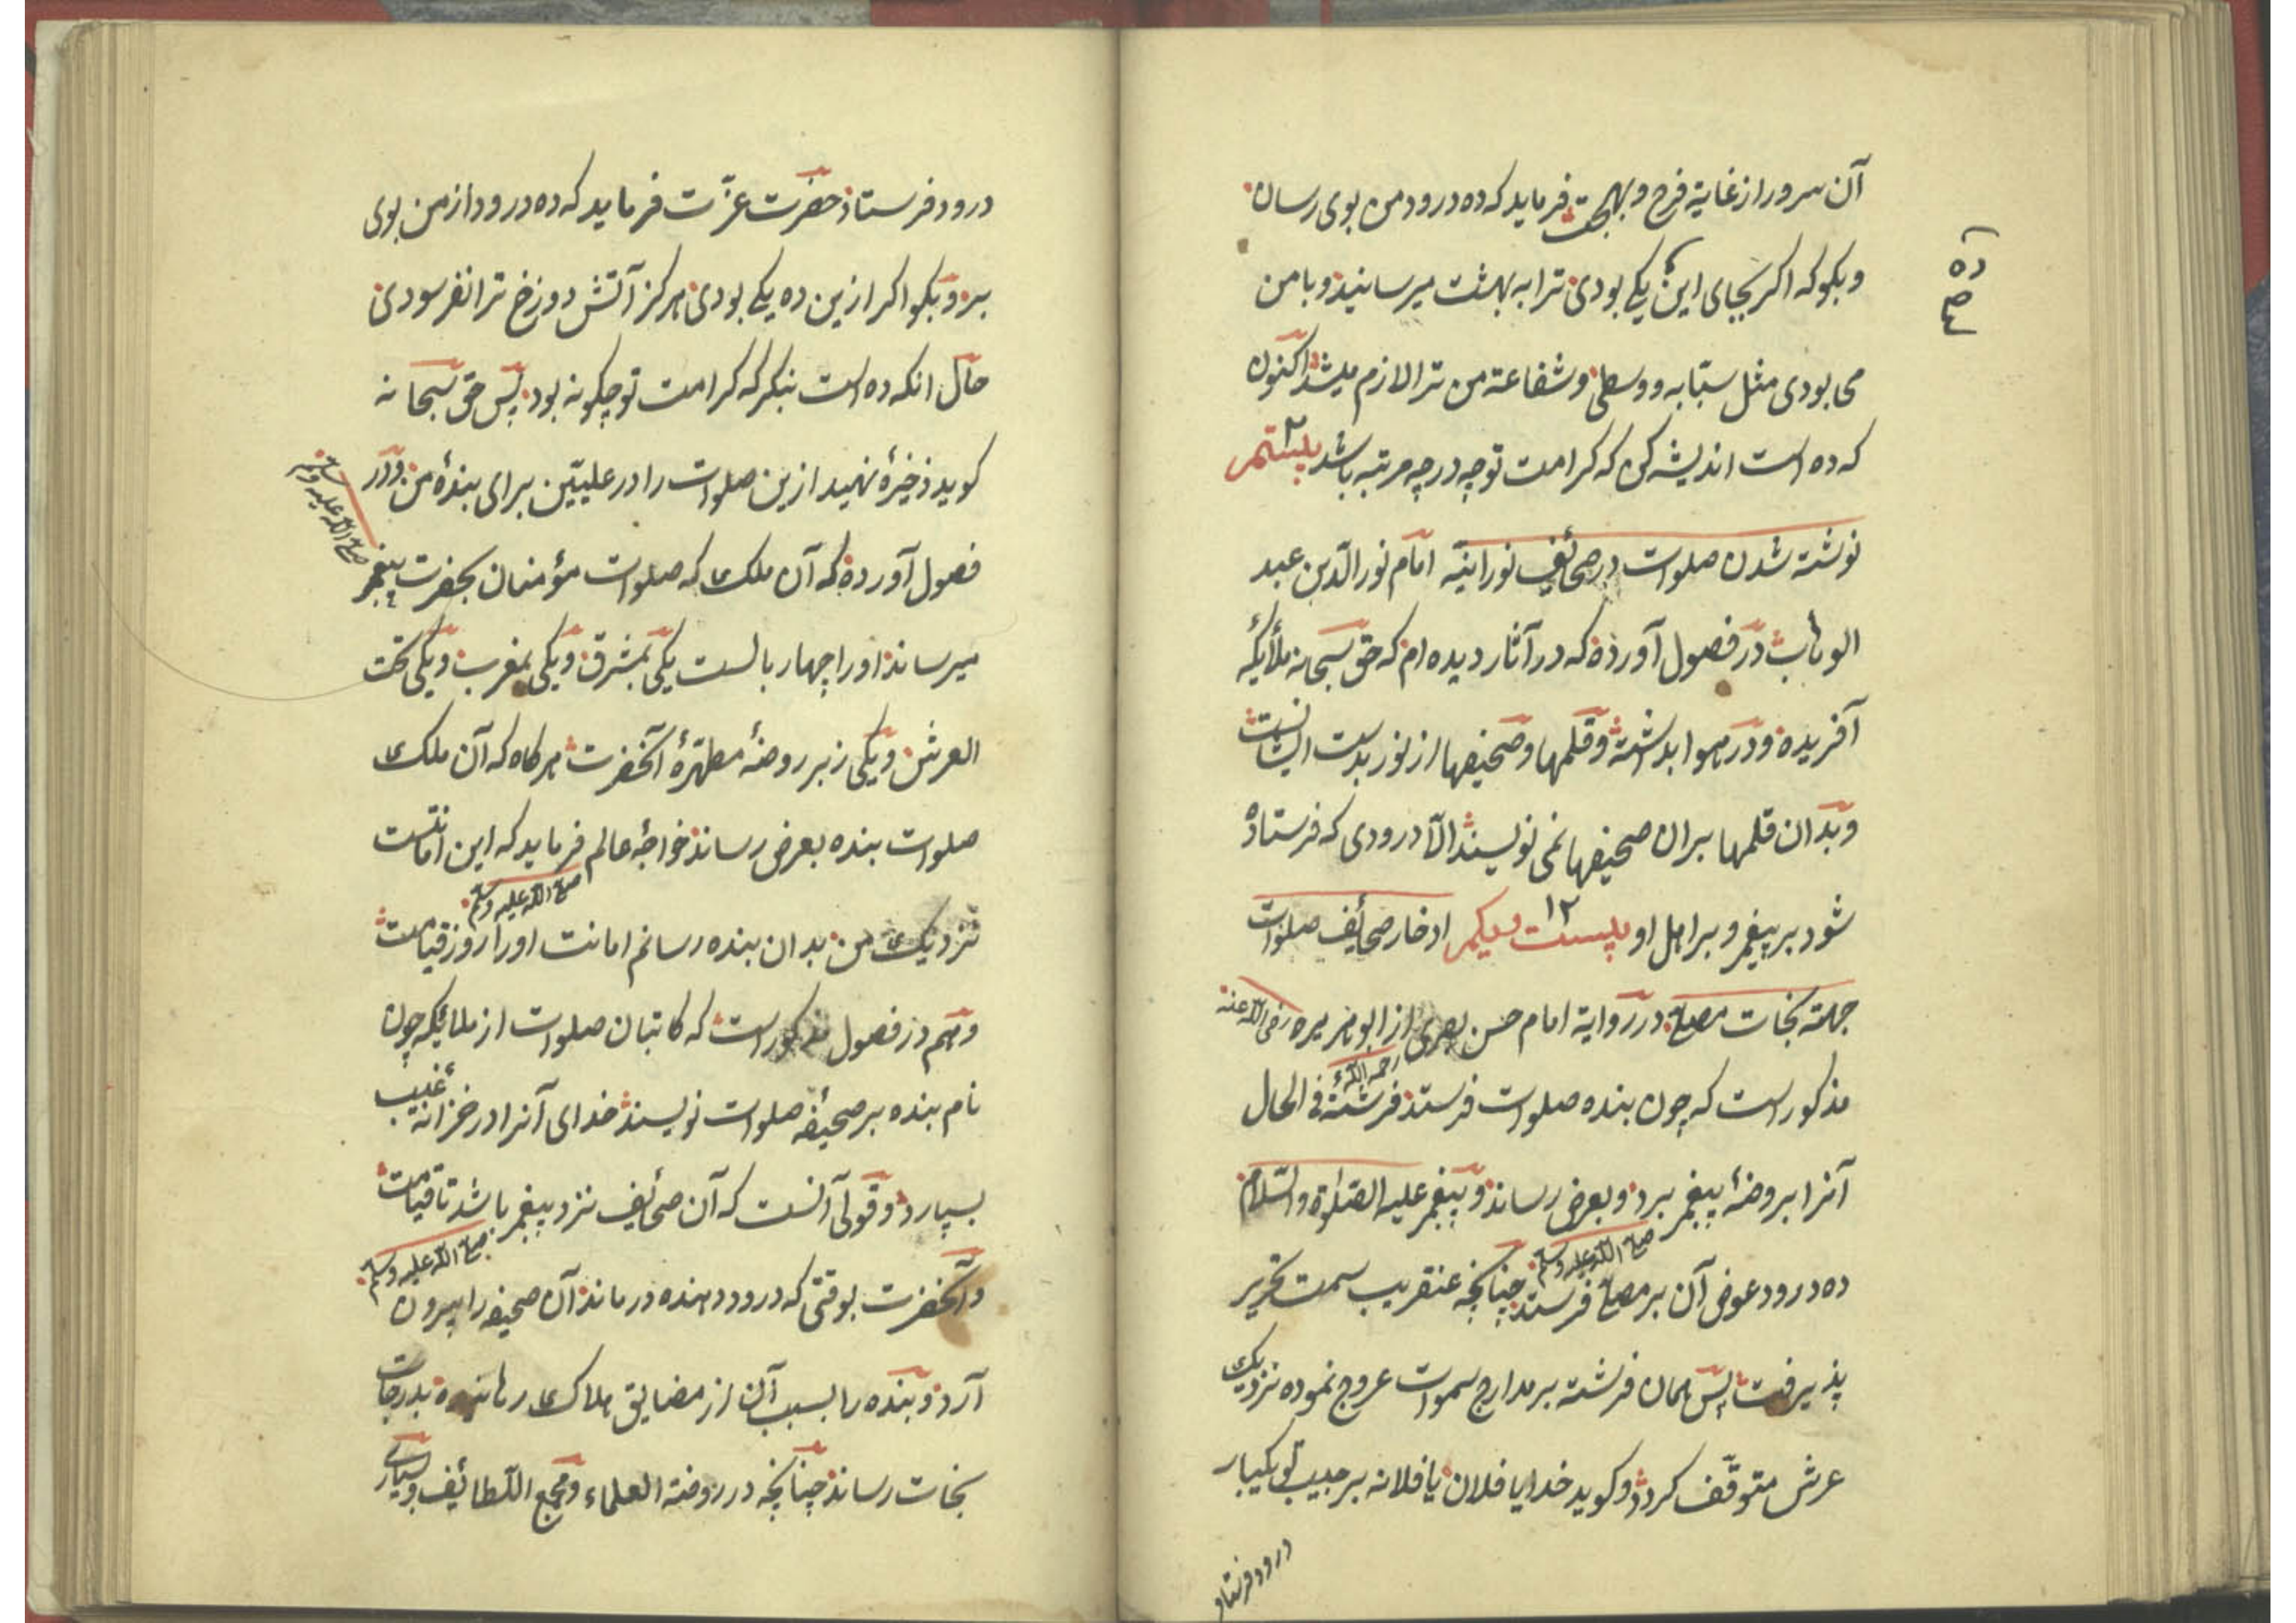 آن سرور از غایة فرح و بهجت فرماید که ده درود من بوی رسان
و بکو که اکر بجای این یکی بودی ترا به بهشت میرسانید و با من
ده
صح
می بودی مثل سبّابه و وسطی و شفاعة من ترا لازم میشد اکنون
که ده است اندیشه کن که کرامت تو چه درجه مرتبه باشد بیستم ٢
نوشته شدن صلوات در صحائف نورانیّه امام نور الدّین عبد
الوهاب در فصول آورده که در آثار دیده ام که حق سبحانه ملائکه
آفریده و در هوا بداشته و قلمها و صحیفها از نور بدست ایشانست
و بدان قلمها بران صحیفها نمی نویسند الّا درودی که فرستاده
شود بر پیغمبر و بر اهل او بیست یکم ١٢ ادخار صحائف صلوات
جهته نجات مصلّی در روایة امام حسن بصری از ابو هریره رضی الله عنه
رحمه الله
مذکور است که چون بنده صلوات فرستد فرشتۀ فی الحال
آنرا بروضۀ پیغمبر برد و بعرض رساند و پیغمبر علیه الصّلوة و السّلام
صلی الله علیه وسلم
ده درود عوض آن بر مصلّی فرستد چنانچه عنقریب سمت تحریر
پذیرفت پس همان فرشته بر مدارج سموات عروج نموده نزدیک
عرش متوقّف کردد و کوید خدایا فلان یا فلانه بر حبیب تو یکبار
درود فرستاد
درود فرستاد حضرت عزّت فرماید که ده درود از من بوی
بر و بکو اکر ازین ده یکی بودی هرکز آتش دوزخ ترا نفرسودی
حال انکه ده است بنکر که کرامت تو چکونه بود پس حق سبحانه
کوید ذخیرۀ نهید ازین صلوات را در علیّین برای بندۀ من و در
فصول آورده که آن ملک که صلوات مؤمنان بحضرت پیغمبر
صلی الله علیه وسلم
میرساند او را چهار بالست یکی بمشرق و یکی بمغرب و یکی تحت
العرش و یکی زبر روضۀ مطهّرۀ آنحضرت هر کاه که آن ملک
صلوات بنده بعرض رساند خواجۀ عالم فرماید که این امانتست
صلی الله علیه وسلم
نزدیک من بدان بنده رسانم امانت او را روز قیامت
و هم در فصول مذکور است که کاتبان صلوات از ملائیکه چون
نام بنده بر صحیفۀ صلوات نویسند خدای آنرا در خزانۀ غیب
بسپارد و قولی آنست که آن صحائف نزد پیغمبر باشد تا قیامت
صلی الله علیه وسلم
و آنحضرت بوقتی که درود دهنده درماند آن صحیفه را بیرون
آرد و بنده را بسبب آن از مضایق هلاک رهانیده بدرجات
نجات رساند چنانچه در روضة العلماء و مجمع اللّطائف و بسیاری